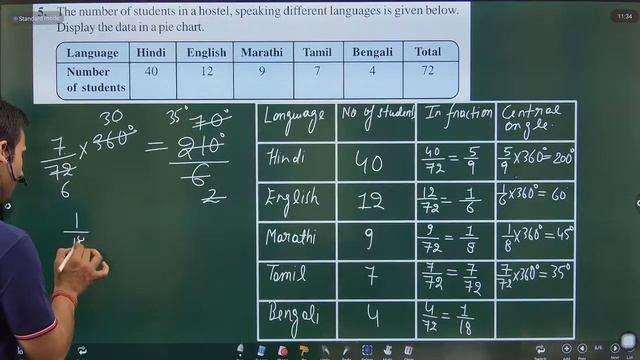 Standard mode
11:34
5. The number of students in a hostel, speaking different languages is given below.
Display the data in a pie chart.
Language Hindi English Marathi Tamil Bengali Total
Number of students 40 12 9 7 4 72
30 35° 70°
7/72 × 360° = 210°/6
6 2
1/18
Language No of students In fraction Central angle.
Hindi 40 40/72 = 5/9 5/9 × 360° = 200°
English 12 12/72 = 1/6 1/6 × 360° = 60°
Marathi 9 9/72 = 1/8 1/8 × 360° = 45°
Tamil 7 7/72 = 7/72 7/72 × 360° = 35°
Bengali 4 4/72 = 1/18